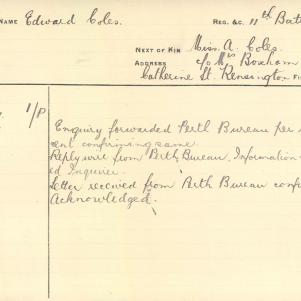 NAME Edward Coles. REG. &C. 11th Bat
NEXT OF KIN Miss. A. Coles.
ADDRESS c/o Mrs Boxham
Catherine St. Kensington
1/P
Enquiry forwarded Perth Bureau per
ent confirming same.
Reply wire from Perth Bureau. Information
ed Inquirer.
Letter received from Perth Bureau conf
Acknowledged.